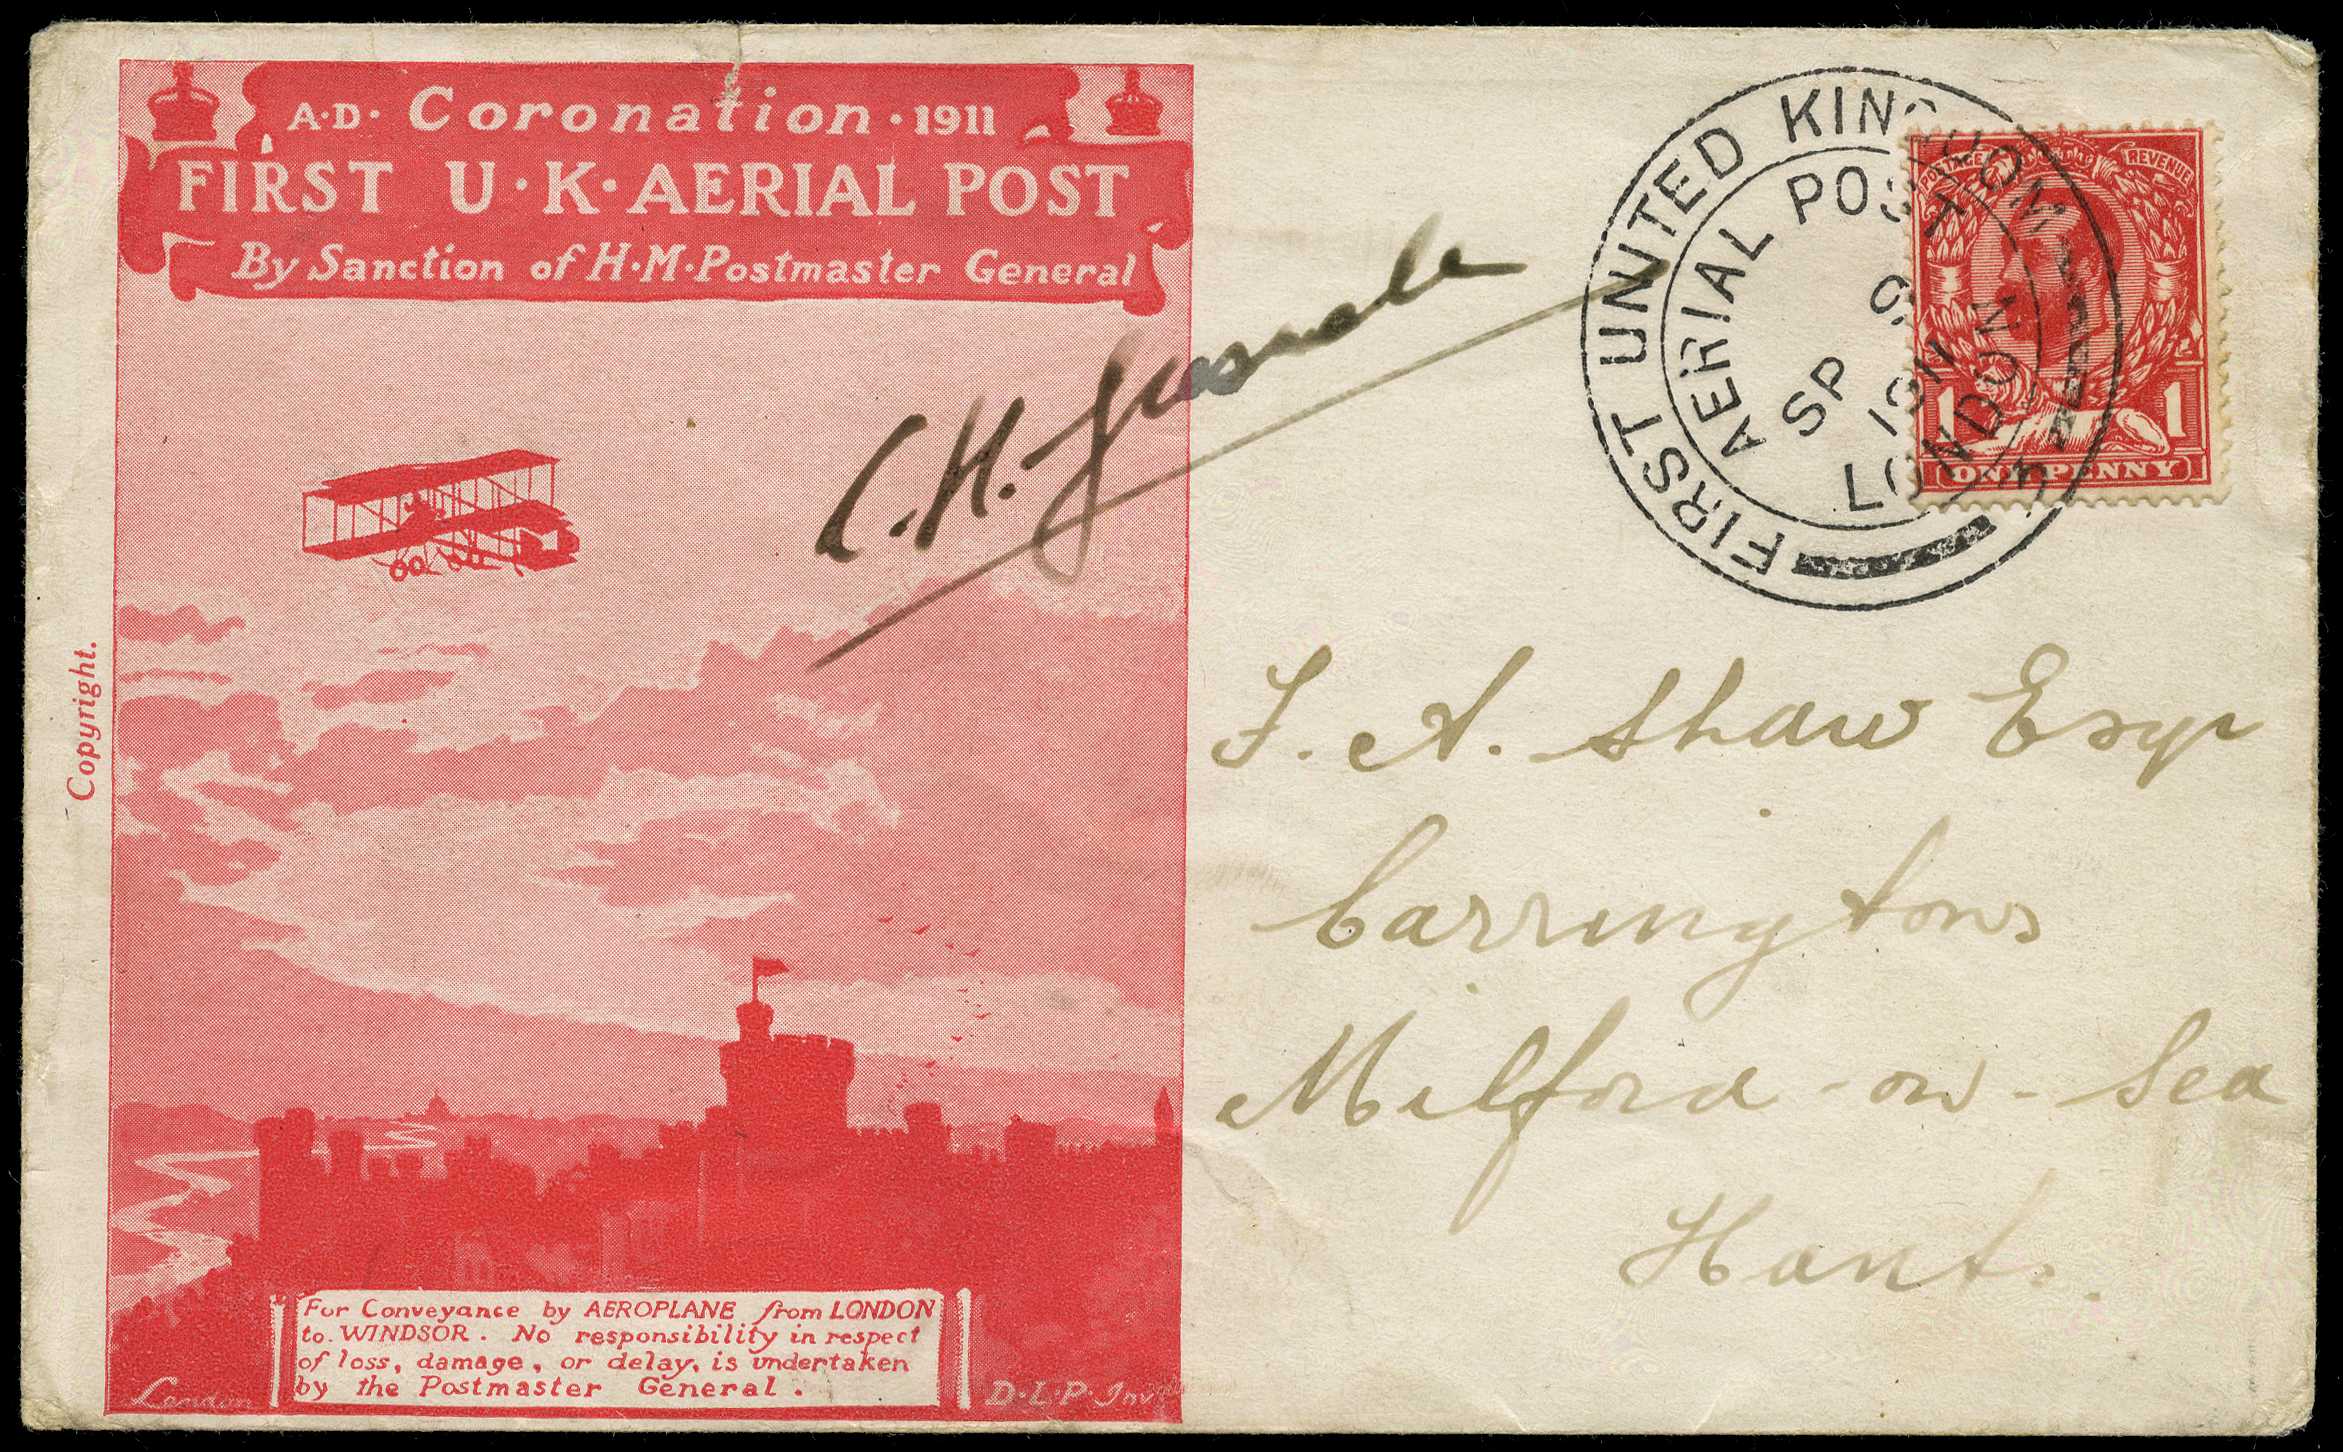 A·D· Coronation · 1911
FIRST U·K·AERIAL POST
By Sanction of H·M·Postmaster General
Copyright.
For Conveyance by AEROPLANE from LONDON
to WINDSOR. No responsibility in respect
of loss, damage, or delay, is undertaken
by the Postmaster General.
London
D·L·P· Invt
C. H.
FIRST UNITED KINGDOM
AERIAL POST
SP 9
1911
LONDON
POSTAGE REVENUE
1 1
ONE PENNY
F. A. Shaw Esqr
Carringtons
Milford-on-Sea
Hants.